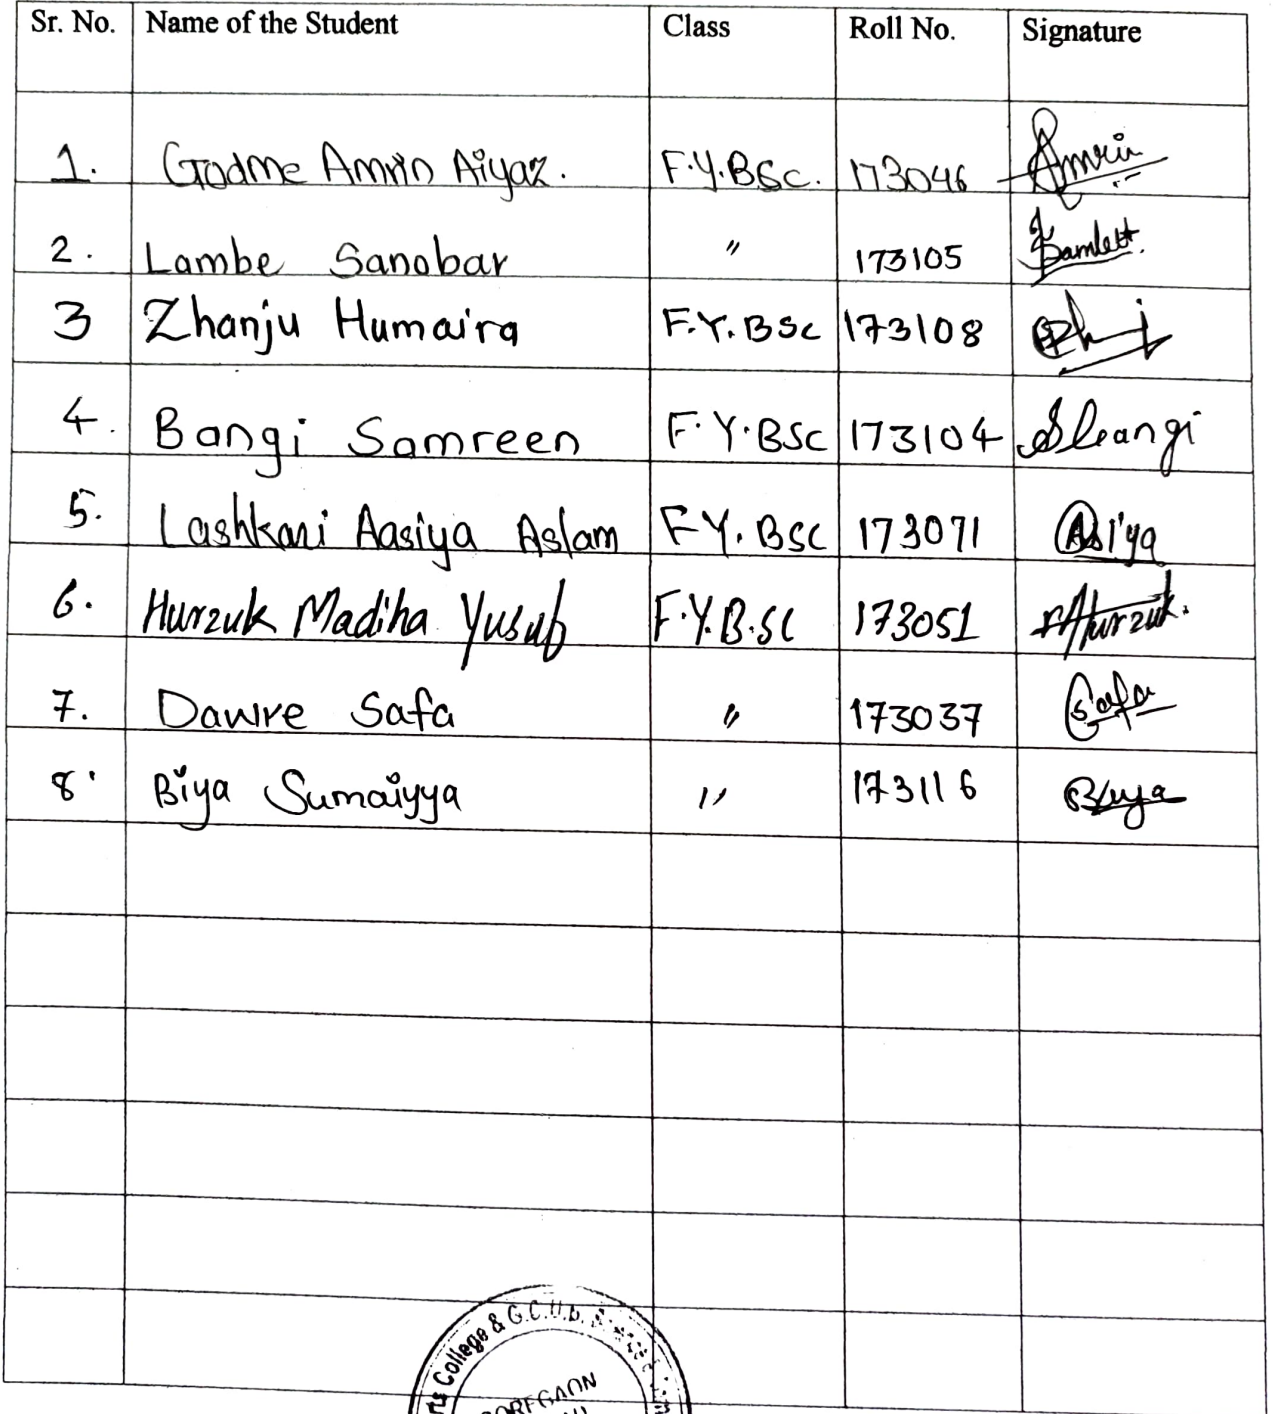 Sr. No. Name of the Student Class Roll No. Signature
1. Godme Amrin Aiyaz. F.Y.BSc. 173046 Amrin
2. Lambe Sanobar " 173105
3 Zhanju Humaira F.Y.BSc 173108
4. Bangi Samreen F.Y.BSc 173104 SBangi
5. Lashkari Aasiya Aslam F.Y.BSc 173071 Asiya
6. Hurzuk Madiha Yusuf F.Y.B.Sc 173051 Hurzuk.
7. Dawre Safa " 173037 Safa
8. Biya Sumaiyya " 173116 Biya
College & G.C.
GOREGAON